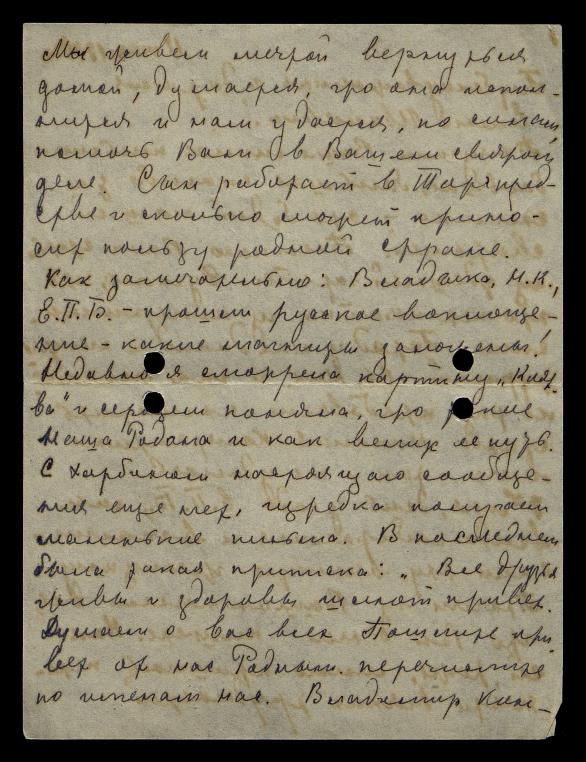 Мы живем мечтой вернуться
домой, думается, что она испол-
нится и нам удастся, по силам,
помочь Вам в Вашем святом
деле. Сын работает в Торгпред-
стве и сколько может прино-
сит пользу родной стране.
Как замечательно: Владыка, Н.К.,
Е.П.Б. – прошли русское воплоще-
ние – какие магниты заложены!
Недавно я смотрела картину „Клят-
ва" и сердцем поняла, что такое
Наша Родина и как велик ее путь.
С Харбином настоящего сообще-
ния еще нет, изредка получаем
маленькие письма. В последнем
была такая приписка: „Все друзья
живы и здоровы шлют привет.
Думаем о вас всех Пошлите при-
вет от нас Родным. перечислите
по именам нас. Владимир Кон-